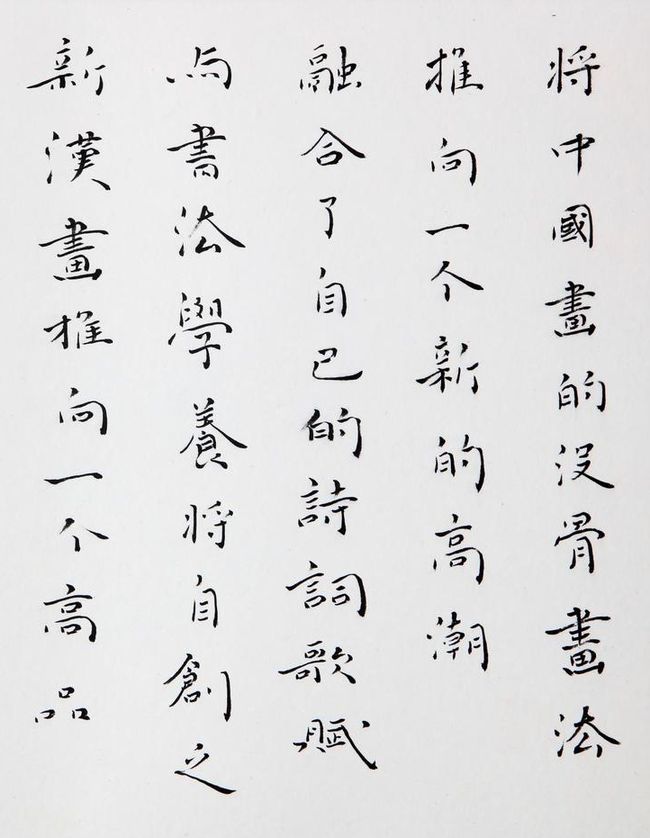 将中國畫的没骨畫法
推向一个新的高潮
融合了自己的詩詞歌賦
与書法學養将自創之
新漢畫推向一个高品